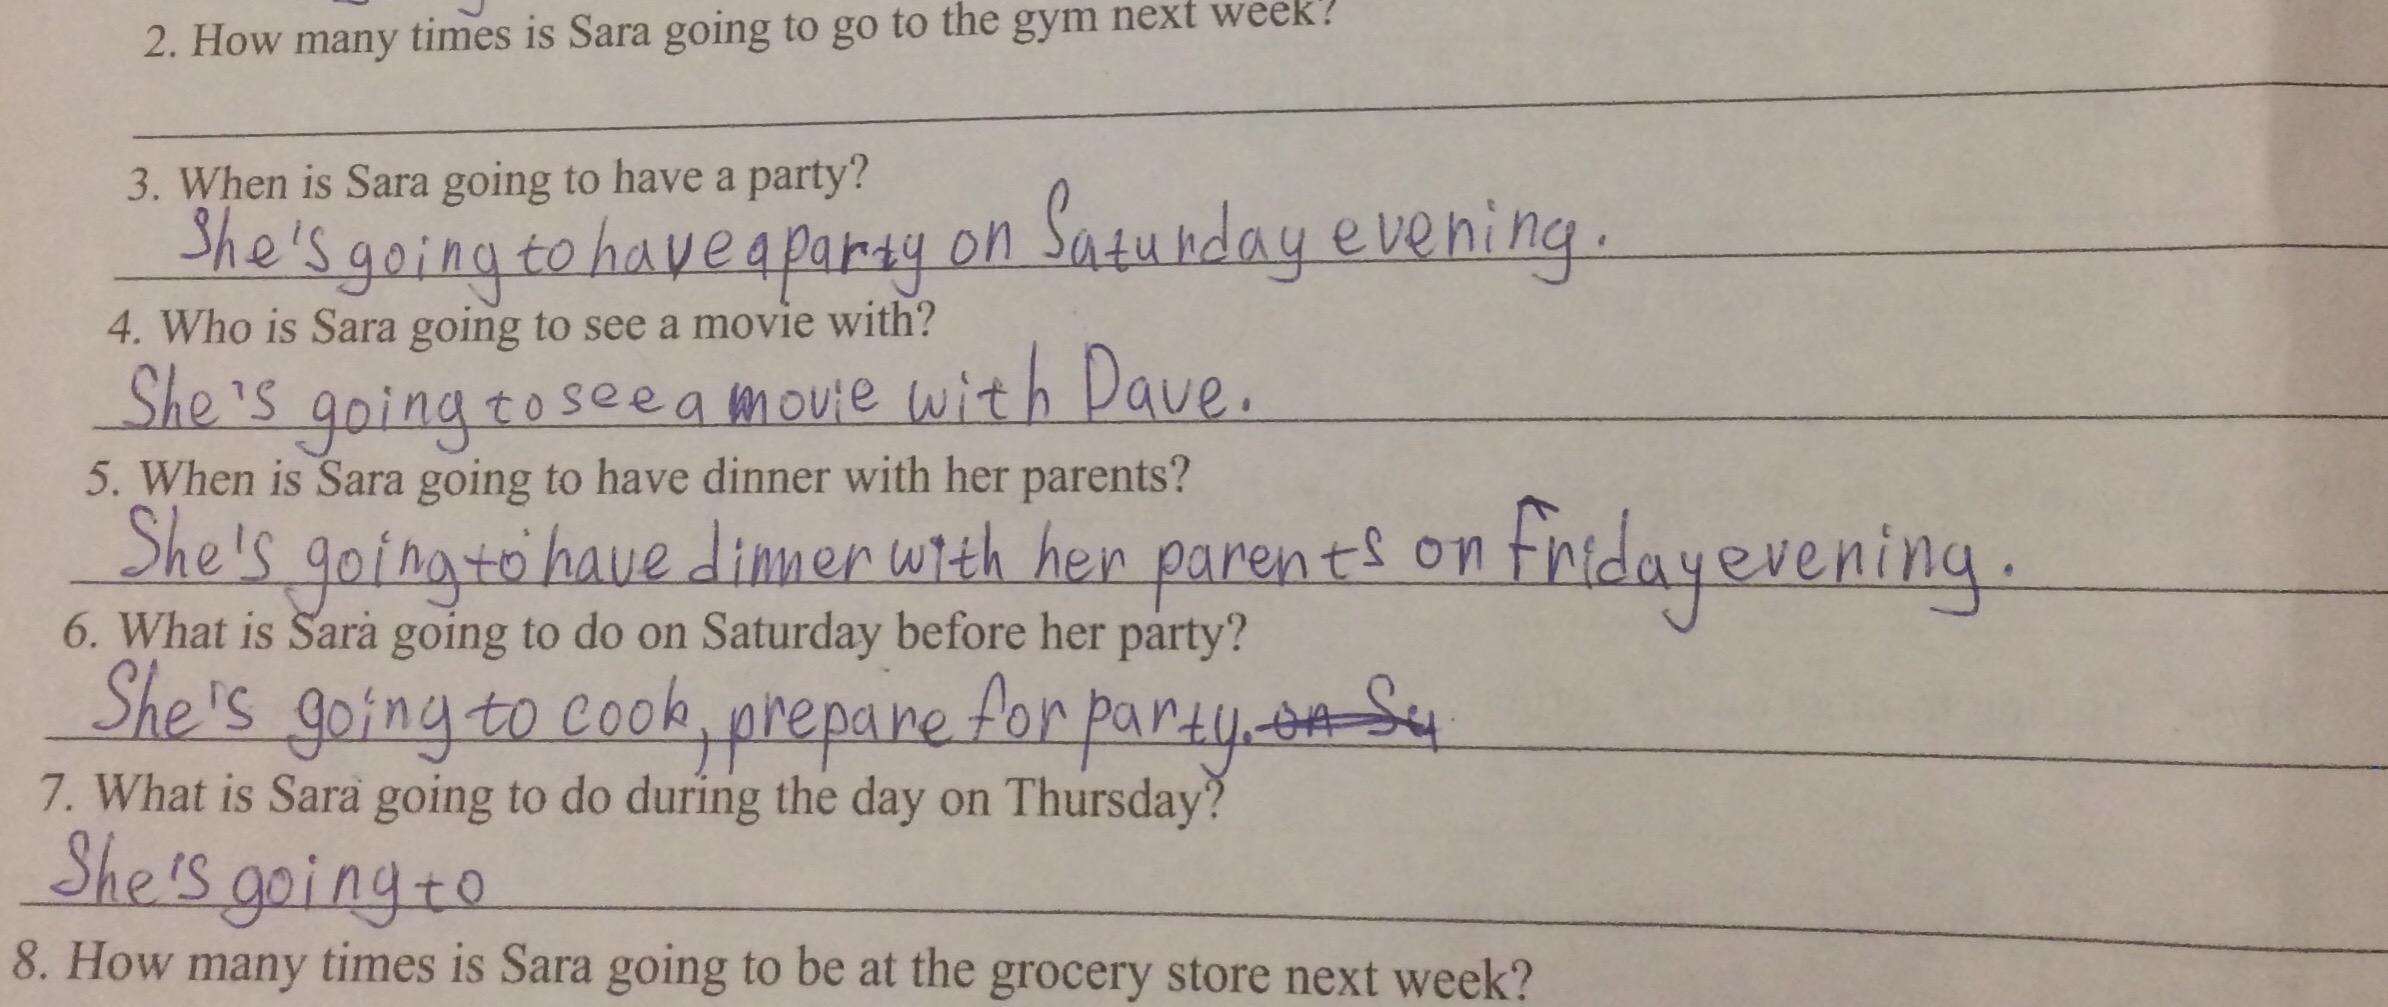 2. How many times is Sara going to go to the gym next week?
3. When is Sara going to have a party?
She's going to have a party on Saturday evening.
4. Who is Sara going to see a movie with?
She's going to see a movie with Dave.
5. When is Sara going to have dinner with her parents?
She's going to have dinner with her parents on Friday evening.
6. What is Sara going to do on Saturday before her party?
She's going to cook, prepare for party. on Sa
7. What is Sara going to do during the day on Thursday?
She's going to
8. How many times is Sara going to be at the grocery store next week?